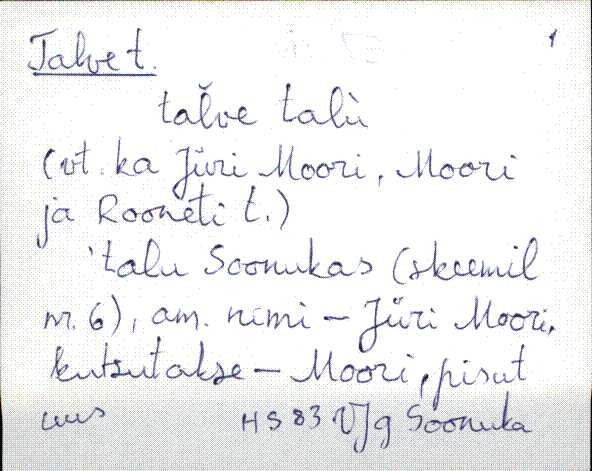 Talve t. 1
talve talu
(vt. ka Jüri Moori, Moori
ja Rooneti t.)
'talu Soonukas (skeemil
nr. 6), am. nimi – Jüri Moori,
kutsutakse – Moori, pisut
uus HS 83 VJg Soonuka